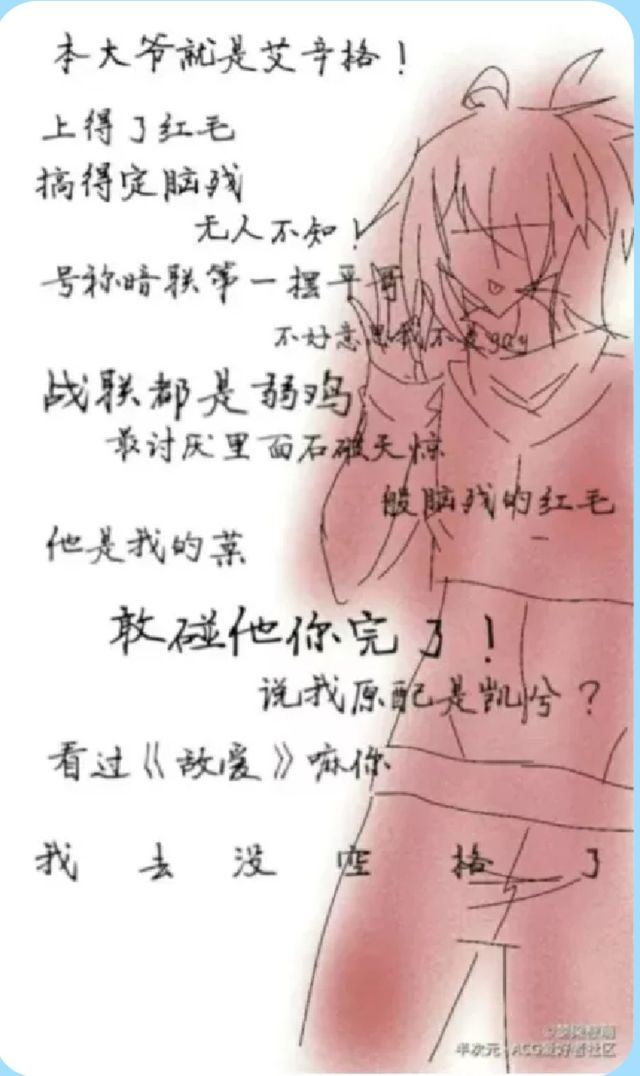 本大爷就是艾辛格！
上得了红毛
搞得定脑残
无人不知！
号称暗联第一摆平哥
不好意思我不是gay
战联都是弱鸡
最讨厌里面石破天惊
般脑残的红毛
他是我的菜
敢碰他你完了！
说我原配是凯兮？
看过《敌爱》嘛你
我去没空格了
半次元-ACG爱好者社区